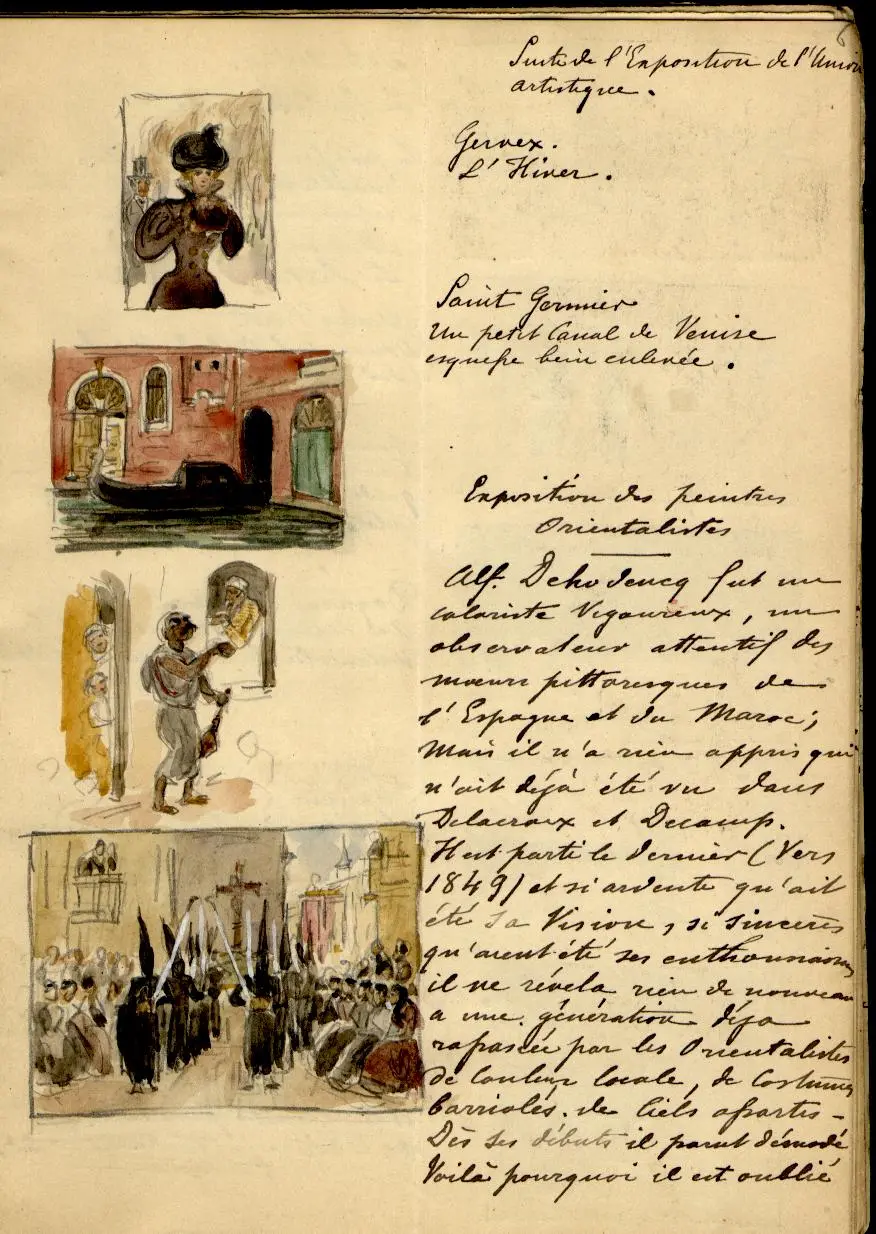 6
Suite de l'Exposition de l'Union
artistique.
Gervex.
L'Hiver.
Saint Germier
Un petit Canal de Venise
esquisse bien enlevée.
Exposition des peintres
Orientalistes
Alf. Dehodencq fut un
coloriste Vigoureux, un
observateur attentif des
mœurs pittoresques de
l'Espagne et du Maroc;
Mais il n'a rien appris qui
n'ait déjà été vu dans
Delacroix et Decamp.
Il est parti le dernier (Vers
1849) et si ardente qu'ait
été sa Vision, si sincères
qu'aient été ses enthousiasmes
il ne révéla rien de nouveau
a une génération déja
rassasiée par les Orientalistes
de Couleur locale, de Costumes
barriolés. de Ciels
Dès ses débuts il parut démodé
Voilà pourquoi il est oublié